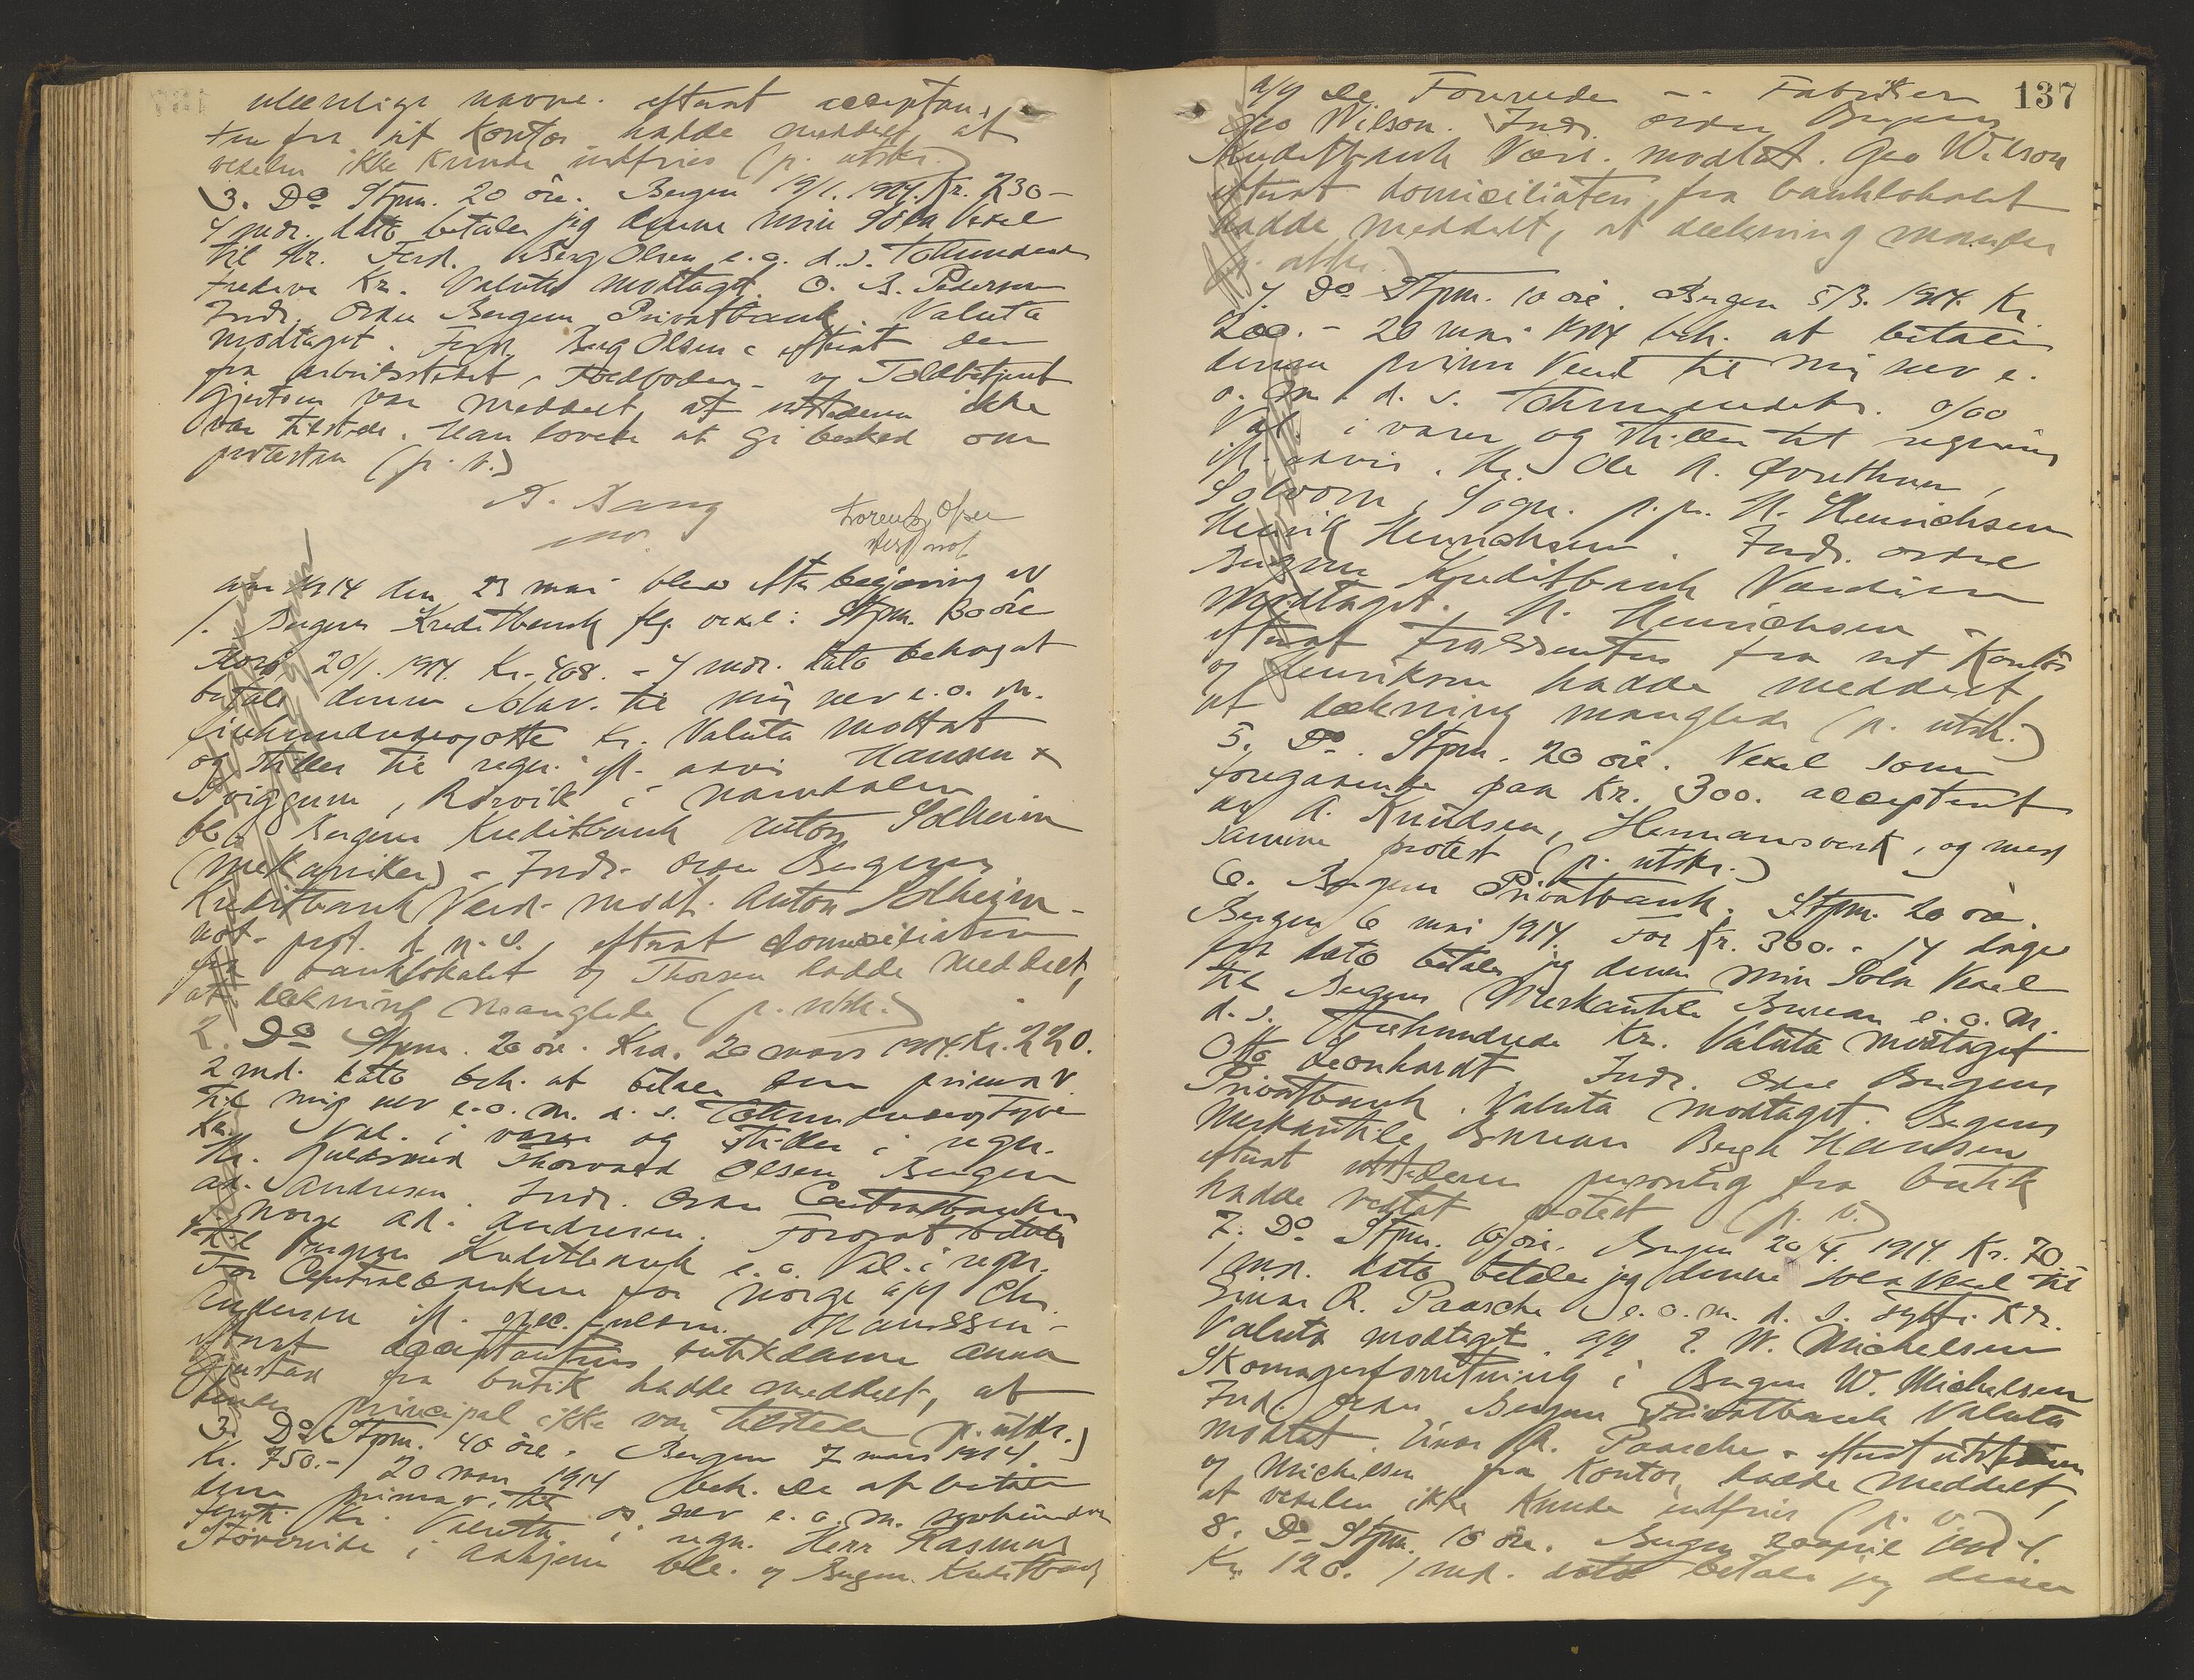 navne. eftersat acceptan-
ten fra sit Kontor hadde meddelt, at
vekselen ikke kunde indfries (p. utskr.)
3. Do Stpm. 20 öre. Bergen 19/1. 1914. Kr. 230-
4 mdr. dato betaler jeg denne min Sola Vexel
til Hr. Ferd. Berg Olsen e. o. d. s. Tohundrede
tredive Kr. Valuta modtaget. O. B. Pedersen
Indr. Ordre Bergens Privatbank. Valuta
modtaget. Ferd. Berg Olsen - eftsat der
fra arbeidsstedet, Toldboden - og Toldbetjent
Gjertsen var meddelt, at utstederen ikke
var tilstede. Han lovete at gi besked om
protesten (p. v.)
A. Bang
Lorentz Olsen
vesp not
Aar 1914 den 23 mai blev efter begjæring av
1. Bergens Kreditbank flg. vexel: Stpm. 30 öre
20/1. 1914. Kr. 408. - 4 mdr. dato behag at
betale denne til mig elv e. o. m.
firehundredeogotte Kr. Valuta mottat
og stilles til regn. ifl. avvis Hansen &
Sviggum, Rörvik i Namdalen
bet. Bergens Kreditbank Anton Solheim
(mekaniker) - Indr. Ordre Bergens
Kreditbank Værd. modt. Anton Solheim -
not. prot. d. n. s., eftsat domiciliaten
fra banklokalet og Thorsen hadde meddelt,
at dekning manglede (p. utsk.)
2. Do Stpm. 20 öre. Kra. 20 mars 1914. Kr. 220.
2 md. dato beh. at betale denne prima V.
til mig selv e. o. m. d. s. Tohundredeogtyve
Kr. Val. i varer og stilles i regn.
Hr. Guldsmed Thorvald Olsen Bergen
Ad. Andresen. Indr. Ordre Centralbanken
f. Norge Ad. Andresen. Forogat betale
til Bergens Kreditbank e. o. Val. i regn.
For Centralbanken for Norge a/s Chr.
Andersen ifl. Hanssen -
eftsat acceptantens butikdame Anna
Gjustad fra butik hadde meddelt, at
hendes principal ikke var tilstede (p. utskr.)
3. Do Stpm. 40 öre. Bergen 7 mars 1914.
Kr. 750.-/ 20 mai 1914 beh. De at betale
denne prima v. til os selv e. o. m. syvhundre
femti Kr. Valuta i regn. Herr Rasmus
Störvende i Askjem ble. og Bergens Kreditbank
137
a/s De Forenede -- Fabriker
Geo Wilson. Indr. ordre Bergens
Kreditbank Værd. modtat. Geo Wilson
eftsat domiciliaten fra banklokalet
hadde meddelt, at dekning mangler
(p. utskr.)
4. Do Stpm. 10 öre. Bergen 5/3. 1914. Kr.
200. - 20 mai 1914 beh. at betale
denne prima Vexel til mig selv e.
o. m. d. s. Tohundredekr. o/oo
Val. i varer og stilles til regning
ifl. avvis. Hr. Ole A. Övrethun,
Solvorn, Sogn. p. p. H. Henrichsen
Henrik Henrichsen. Indr. ordre
Bergens Kreditbank Værdien
Modtaget. H. Henrichsen -
eftsat trassenten fra sit Kontor
og Henriksen hadde meddelt,
at dekning manglede (p. utsk.)
5. Do. Stpm. 20 öre. Vexel som
foregaaende paa Kr. 300. acceptert
av A. Knudsen, Hermansverk, og med
samme protest (p. utskr.)
6. Bergens Privatbank. Stpm. 20 öre.
Bergen 6 mai 1914. For Kr. 300. - 14 dage
fra dato betaler jeg denne min Sola Vexel
til Bergens Merkantile Bureau e. o. m.
d. s. Trehundrede Kr. Valuta modtaget
Otto Leonhardt. Indr. Ordre Bergens
Privatbank. Valuta modtaget. Bergens
Merkantile Bureau Bergh Hansen
eftsat utstederen personlig fra butik
hadde vedtat protest (p. v.)
7. Do Stpm. 10 öre. Bergen 20/4. 1914. Kr. 70.
1 md. dato betaler jeg denne Sola Vexel til
Einar R. Paasche e. o. m. d. s. sytti Kr.
Valuta modtaget. a/s E. W. Michelsen
Skomagerforretning i Bergen W. Michelsen
Ind. ordre Bergens Privatbank Valuta
modtat. Einar R. Paasche - eftsat utstederen
og Michelsen fra Kontor hadde meddelt,
at vekselen ikke kunde indfries (p. v.)
8. Do Stpm. 10 öre. Bergen 20 april 1914.
Kr. 120. 1 md. dato betaler jeg denne